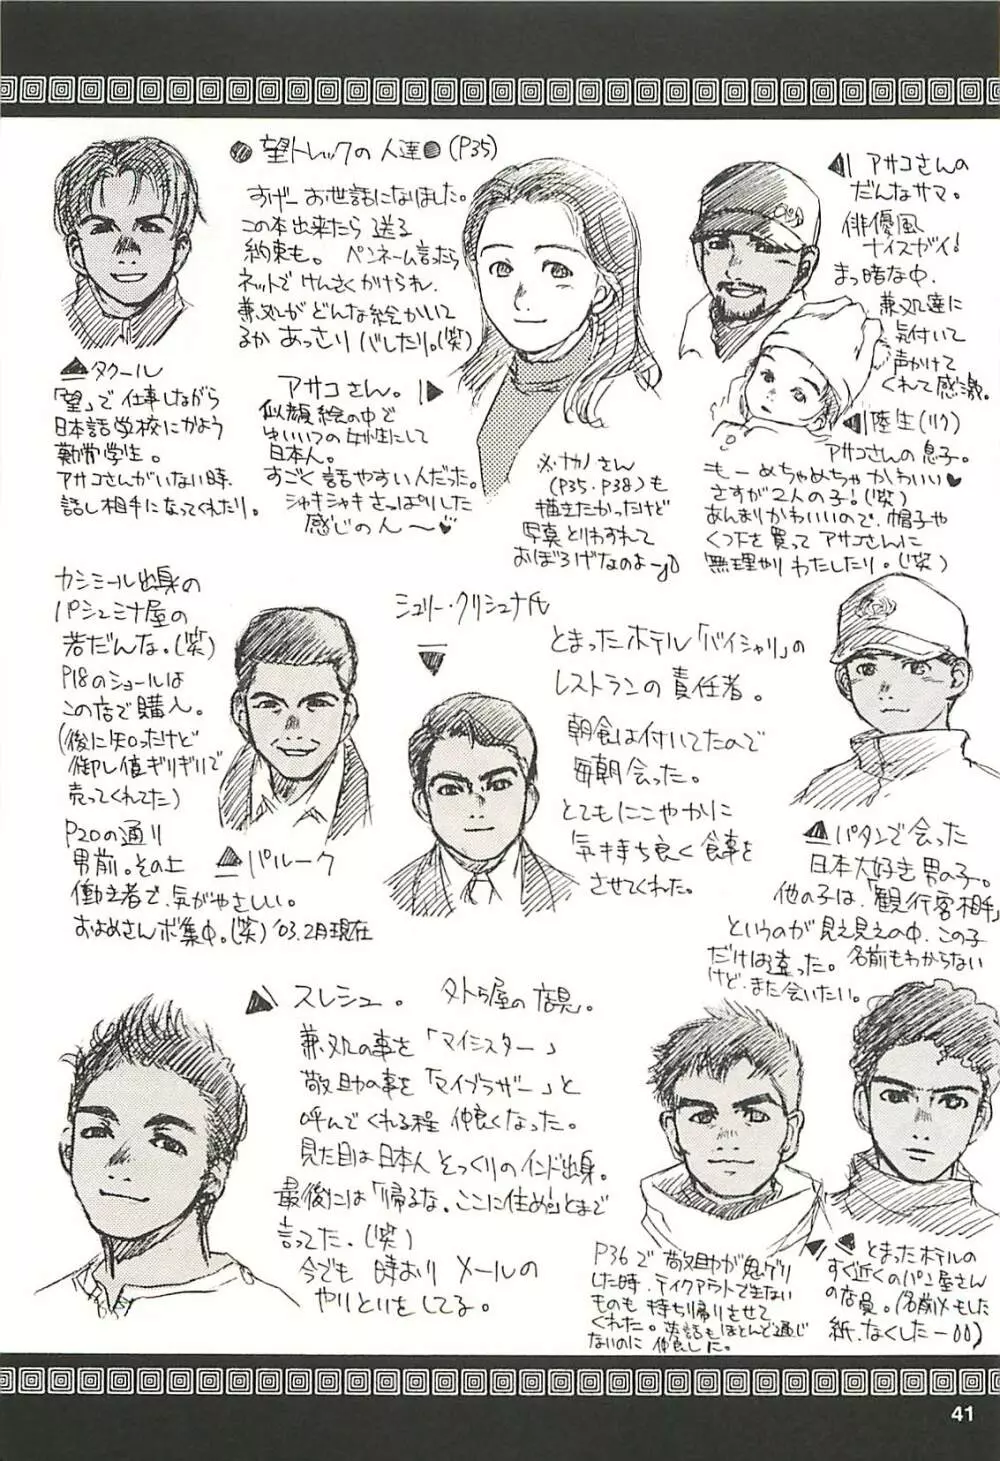 ●望トレックの人達●(P35)
すげーお世話になりました。
この本出来たら送る
約束も。ペンネーム言ったら
ネットでけんさくかけられ、
兼処がどんな絵かいて
るかあっさりバレたり。(笑)
▲タクール
「望」で仕事しながら
日本語学校にかよう
勤労学生。
アサコさんがいない時、
話し相手になってくれたり。
アサコさん。▶
似顔絵の中で
ゆいいつの女性にして
日本人。
すごく話やすい人だった。
シャキシャキさっぱりした
感じのん〜♥
※ナカノさん
(P35.P38)も
描きたかったけど
写真とりわすれて
おぼろげなのよー
◀アサコさんの
だんなサマ。
俳優風
ナイスガイ!
まっ暗な中、
兼処達に
気付いて
声かけて
くれて感激。
◀陸生(リク)
アサコさんの息子。
もーめちゃめちゃかわいい♥
さすが2人の子!(笑)
あんまりかわいいので、帽子や
くつ下を買ってアサコさんに
無理やりわたしたり。(笑)
カシミール出身の
パシュミナ屋の
若だんな。(笑)
P18のショールは
この店で購入。
(後に知ったけど
御し値ギリギリで
売ってくれてた)
P20の通り
男前。その上
働き者で、気がやさしい。
およめさんボ集中。(笑)'03.2月現在
▲パルーク
シュリー・クリシュナ氏
▼
とまったホテル「バイシャリ」の
レストランの責任者。
朝食は付いてたので
毎朝会った。
とてもにこやかに
気持ち良く食事を
させてくれた。
▲パタンで会った
日本大好き男の子。
他の子は、「観行客相手」
というのが見え見えの中、この子
だけは違った。名前もわからない
けど、また会いたい。
▲スレシュ。タトゥ屋の店員。
兼処の事を「マイシスター」
敬助の事を「マイブラザー」と
呼んでくれる程仲良くなった。
見た目は日本人そっくりのインド出身。
最後には「帰るな。ここに住め」とまで
言ってた。(笑)
今でも時おりメールの
やりとりをしてる。
P36で敬助が鬼ゲリ
した時、テイクアウトで出来ない
ものも持ち帰りさせて
くれた。英語もほとんど通じ
ないのに仲良した。
▼▲とまったホテルの
すぐ近くのパン屋さん
の店員。(名前メモした
紙、なくしたー)
41